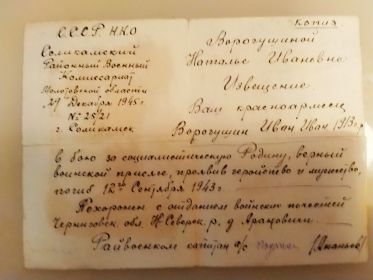 СССР НКО
Соликамский
Районный Военный
Комиссариат
Молотовской области
27 Декабря 1945 г
№ 2521
г. Соликамск
Копия
Ворогушиной
Наталье Ивановне
Извещение
Ваш красноармеец
Ворогушин Иван Иван 1913 г.
в бою за социалистическую Родину, верный
воинской присяге, проявив геройство и мужество,
погиб 18го Сентября 1943 г.
Похоронен с отданием воинских почестей
Черниговск. обл. Н Северск. р. д.
Райвоенком капитан а/с